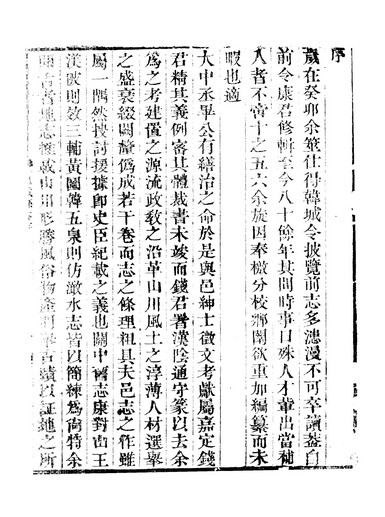 序
歲在癸卯余筮仕得韓城令披覽前志多滲漫不可卒讀蓋自
前令康君修輯至今八十餘年其間時事日殊人才輩出當補
人者不啻十之五六余旋因奉檄分校鄉闈欲重加編纂而未
暇也適
大中丞畢公有繕治之命於是與邑紳士徵文考獻屬嘉定錢
君精其義例審其體裁書未竣而錢君署漢陰通守篆以去余
爲之考建置之源流政教之沿革山川風土之淳薄人材選舉
之盛衰綴闕釐僞成若干卷而志之條理粗具夫邑志之作雖
屬一隅然搜討援據即史臣紀載之義也關中舊志康對山王
渼陂則效三輔黃圖韓五泉則仿澉水志皆以簡練爲尚特余
山川形勝風俗物產
古蹟以証地之所